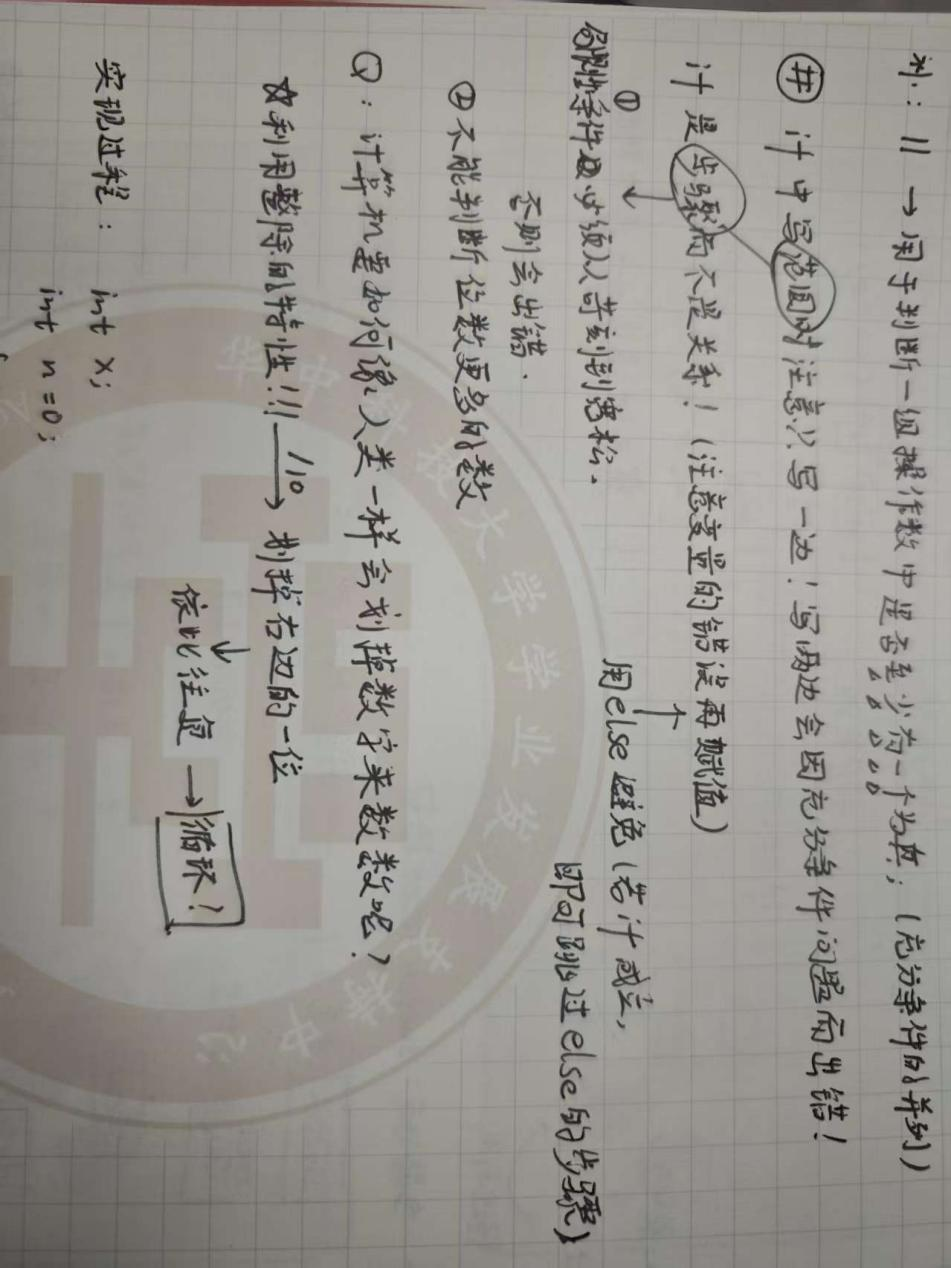 补：|| → 用于判断一组操作数中是否至少有一个为真；(充分条件的并列)
井 if中写范围时注意只写一边！写两边会因充分条件问题而出错！
if是步骤而不是关系！(注意变量的错误再赋值)
↑
用else避免(若if成立，
即可跳过else的步骤)
↓
① 条件必须从苛刻到宽松.
否则会出错.
② 不能判断位数更多的数
Q：计算机要如何像人类一样会划掉数字来数数呢？
利用整除的特性!!! —/10→ 划掉右边的一位
↓
依此往复 → 循环！
实现过程： int x;
int n=0;
华中科技大学学生学业发展支持中心